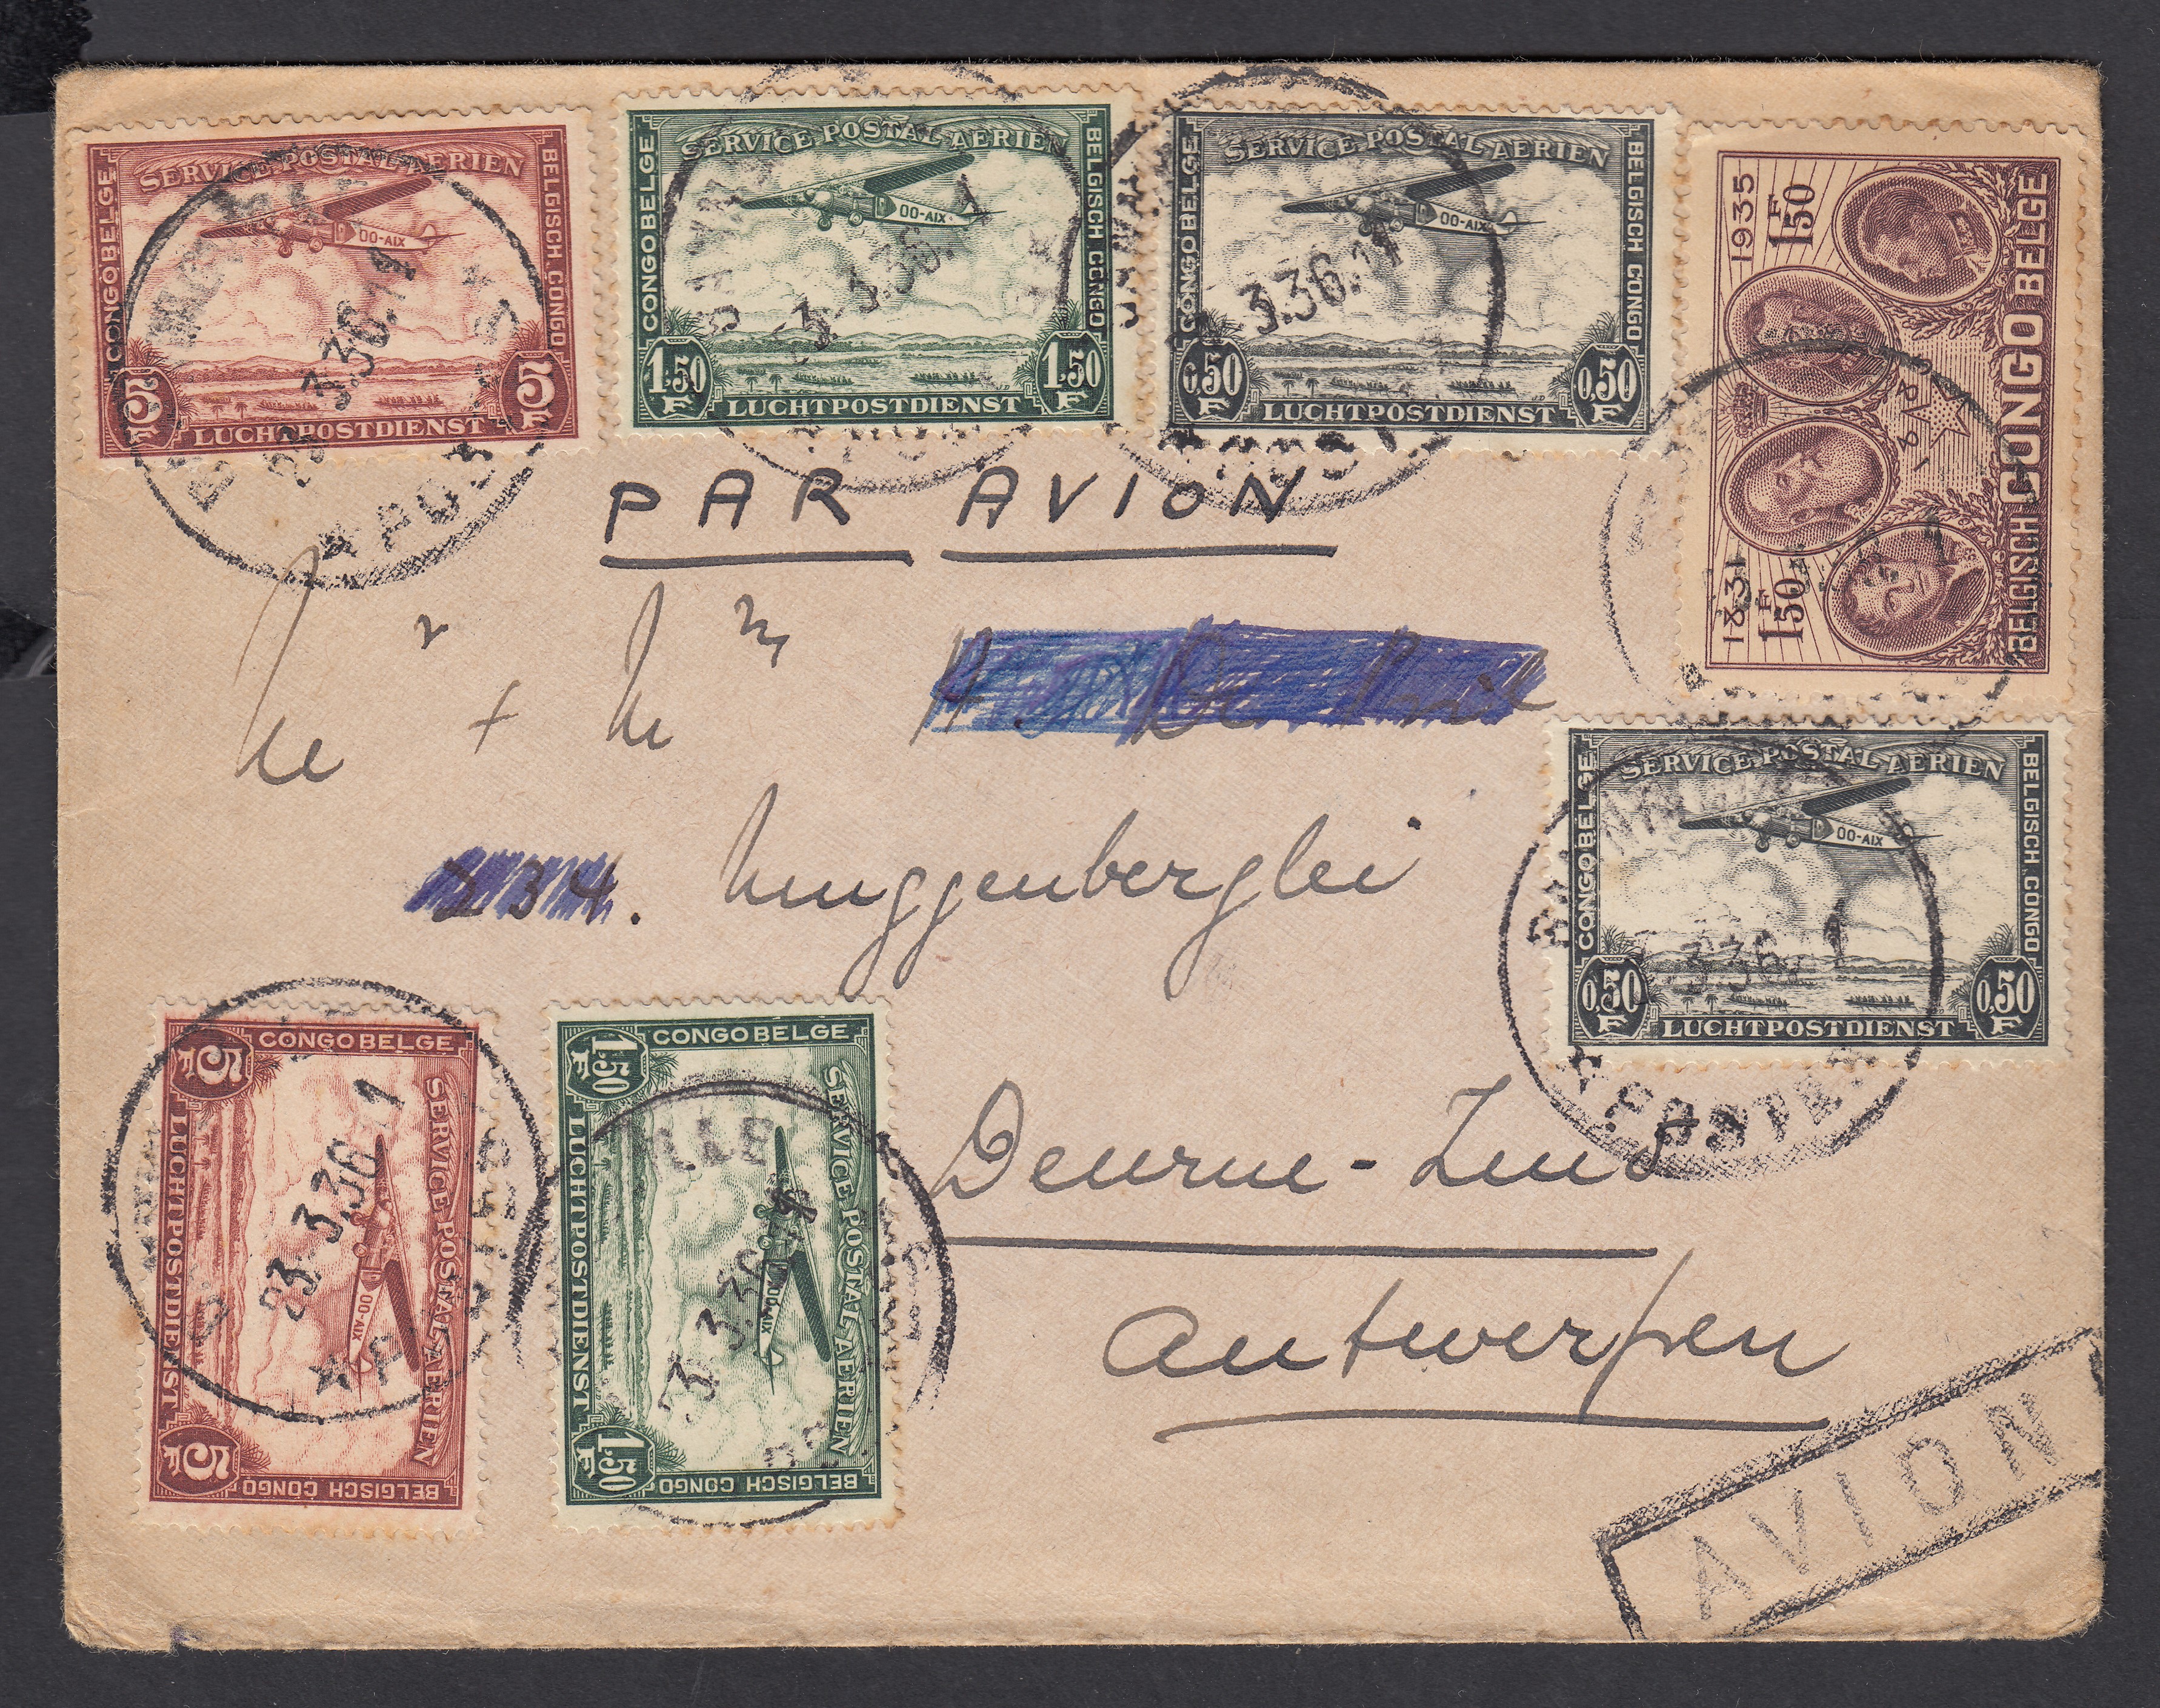 SERVICE POSTAL AERIEN
CONGO BELGE
BELGISCH CONGO
OO-AIX
5 F
5 F
LUCHTPOSTDIENST
23 3.36.11
SERVICE POSTAL AERIEN
CONGO BELGE
BELGISCH CONGO
OO-AIX
1.50 F
1.50 F
LUCHTPOSTDIENST
3.36.
SERVICE POSTAL AERIEN
CONGO BELGE
BELGISCH CONGO
OO-AIX
0.50 F
0.50 F
LUCHTPOSTDIENST
3.36.11
1831 1935
1F50 1F50
BELGISCH CONGO BELGE
PAR AVION
+
234.
Deurne-Zuid
Antwerpen
SERVICE POSTAL AERIEN
CONGO BELGE
BELGISCH CONGO
OO-AIX
0.50 F
0.50 F
LUCHTPOSTDIENST
3.36.
POSTE
CONGO BELGE
5 F
SERVICE POSTAL AERIEN
LUCHTPOSTDIENST
OO-AIX
5 F
BELGISCH CONGO
23.3.36 11
CONGO BELGE
1.50 F
SERVICE POSTAL AERIEN
LUCHTPOSTDIENST
OO-AIX
1.50 F
BELGISCH CONGO
VILLE
AVION